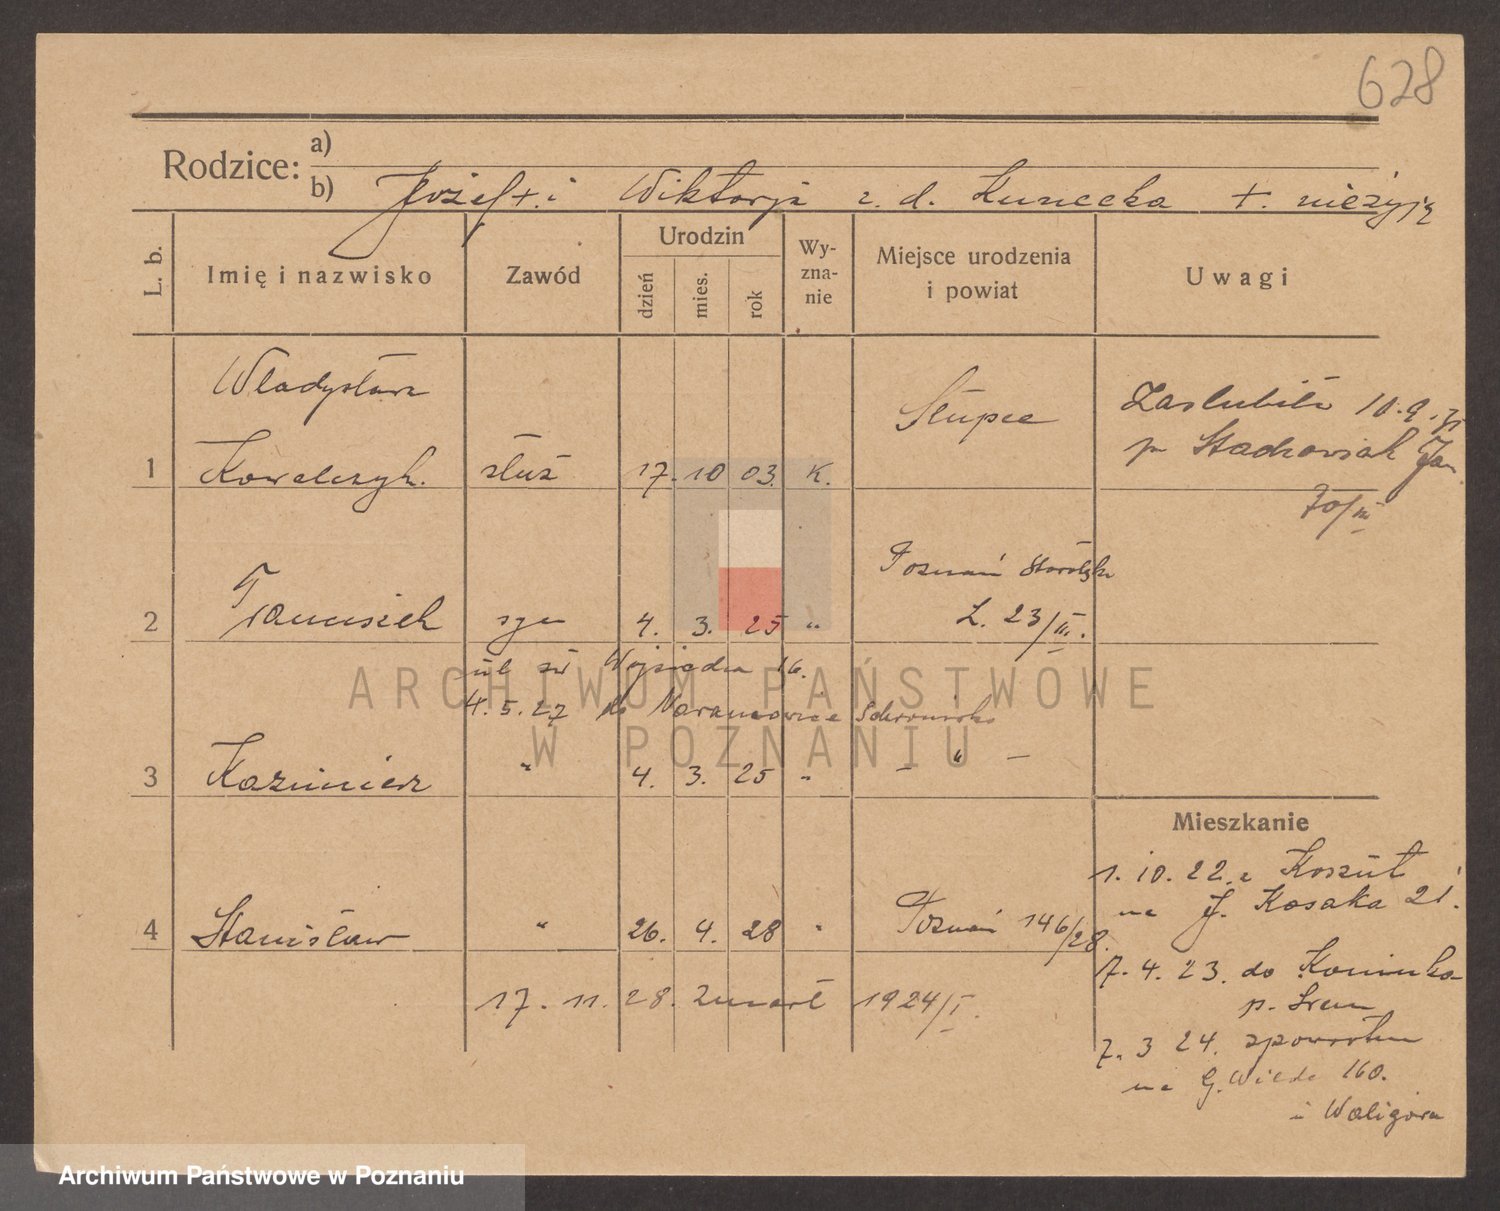 628
Rodzice: a)
b) Józef +. i Wiktorja z. d. Kunecka +. nieżyją
L. b. Imię i nazwisko Zawód Urodzin dzień mies. rok Wy-zna-nie Miejsce urodzenia i powiat Uwagi
Władysława Słupca Zaślubiła 10.9.31
1 Kowalczyk. służ 17. 10 03. K. p. Stachowiak Jan
70/III
Poznań
2 Franciszek syn 4. 3. 25 " L. 23/III.
ul św Wojciecha 16.
4. 5. 27 do Naramowice Schronisko
ARCHIWUM PAŃSTWOWE
W POZNANIU
3 Kazimierz " 4. 3. 25 " – " –
Mieszkanie
1. 10. 22. z Koszut
na J. Kosaka 21.
4 Stanisław " 26. 4. 28 " Poznań 146/28.
7. 4. 23. do Koninka
p. Śrem
17. 11. 28. zmarł 1924/I.
7. 3 24. spowrotem
na G. Wilda 160.
u Waligóra
Archiwum Państwowe w Poznaniu